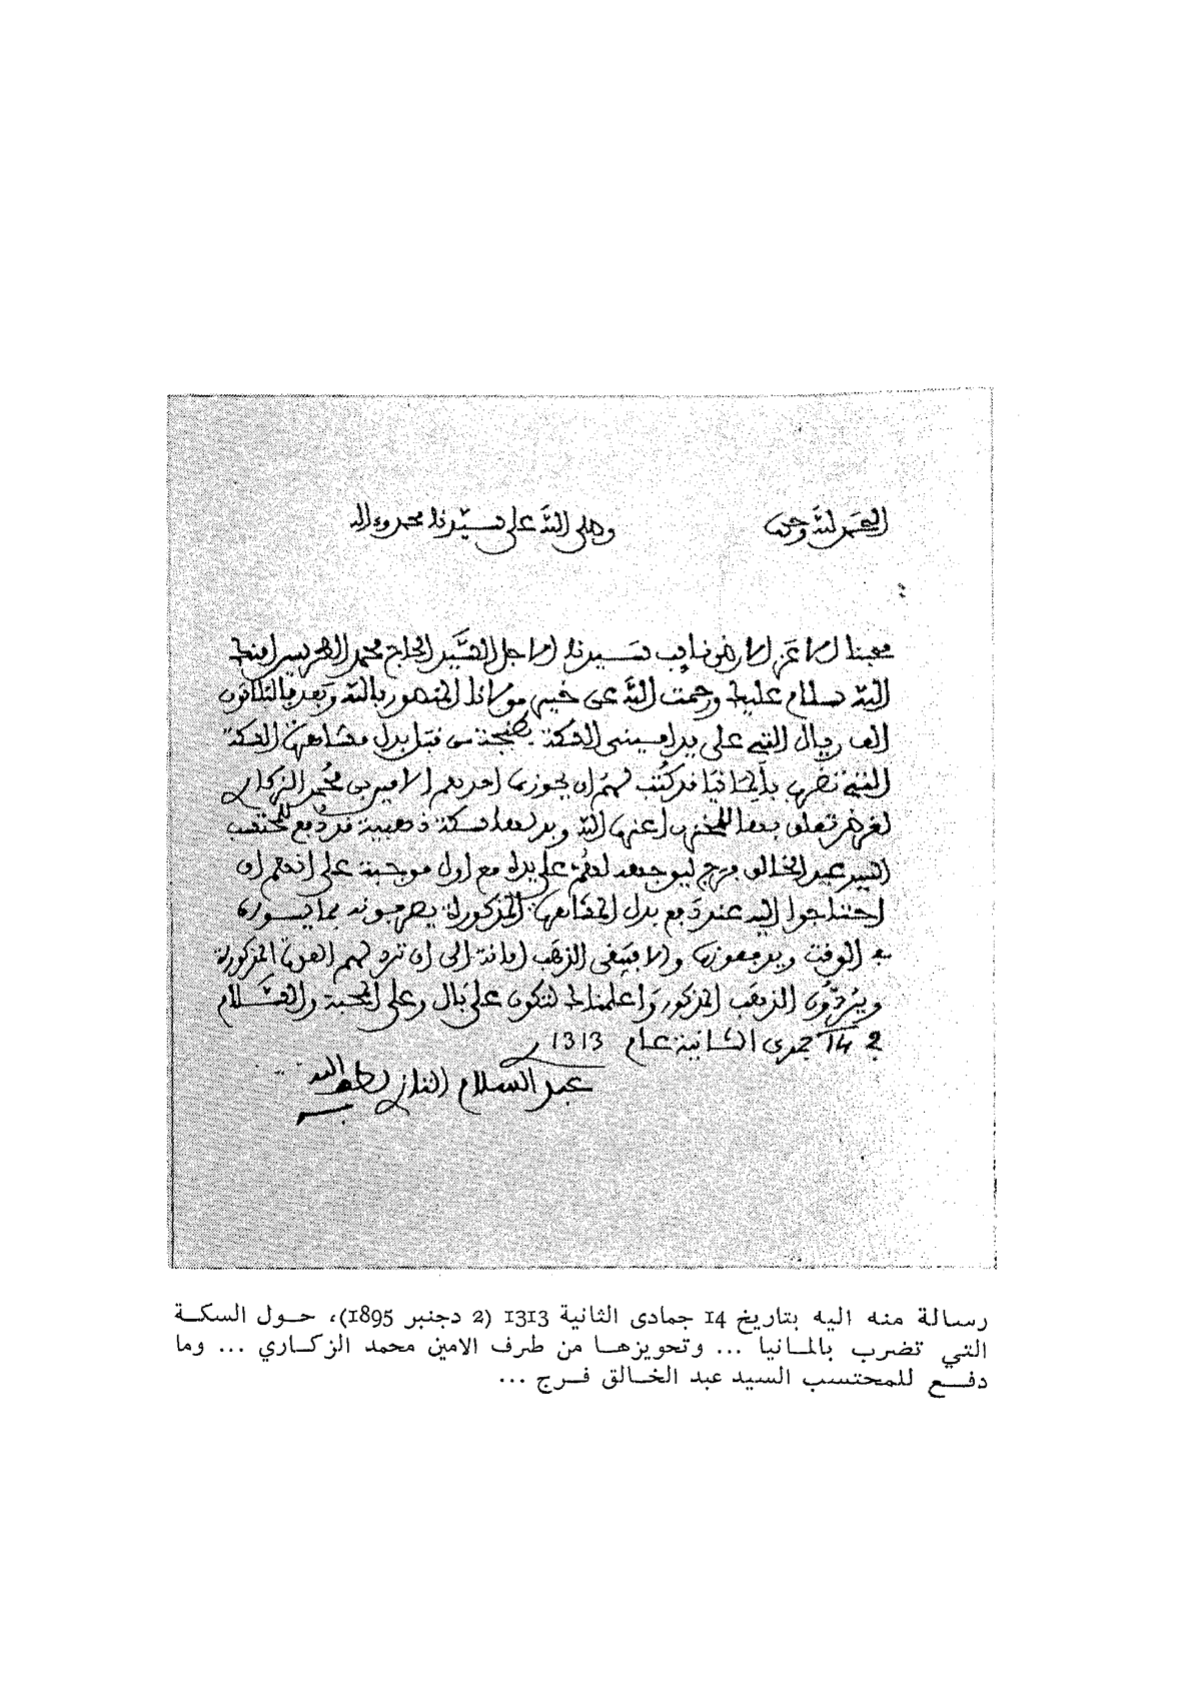 الحمد لله وحده وصلى الله على سيدنا محمد وءاله
محبنا الاعز الارضى نايب سيدنا الاجل السيد الحاج محمد الطريس امنك
الله سلام عليك ورحمت الله عن خير مولانا المنصور بالله وبعد فالثلاثون
الف ريال التي على يد امينى السكة بطنجة من قبل بدل السكة
التي تضرب بالمانيا فدكتب لهم ان يحوزها احدهم الامين محمد الزكاري
لغرض تعلق بها للمخزن اعزه الله وبدلها سكة ذهبية قد دفع للمحتسب
السيد عبد الخالق فرج ليوجهه لهم على يده مع اول على انهم ان
احتاجوا اليه عند دفع بدل المذكورة يصرفونه بما يسوى
في الوقت ويدفعونها والا فيبقى الذهب امانة الى ان ترد لهم المذكورة
ويردون الذهب المذكور واعلمناك لتكون على بال وعلى المحبة والسلام
في 14 جمدى الثانية عام 1313
عبد السلام التازي لطف الله به
رسالة منه اليه بتاريخ 14 جمادى الثانية 1313 (2 دجنبر 1895)، حول السكة
التي تضرب بالمانيا ... وتحويزها من طرف الامين محمد الزكاري ... وما
دفع للمحتسب السيد عبد الخالق فرج ...